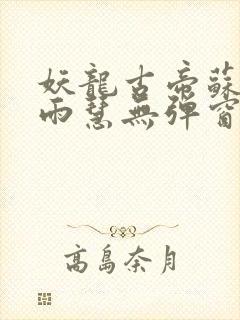 妖龍古帝蘇
雨慧無彈窗
高島奈月